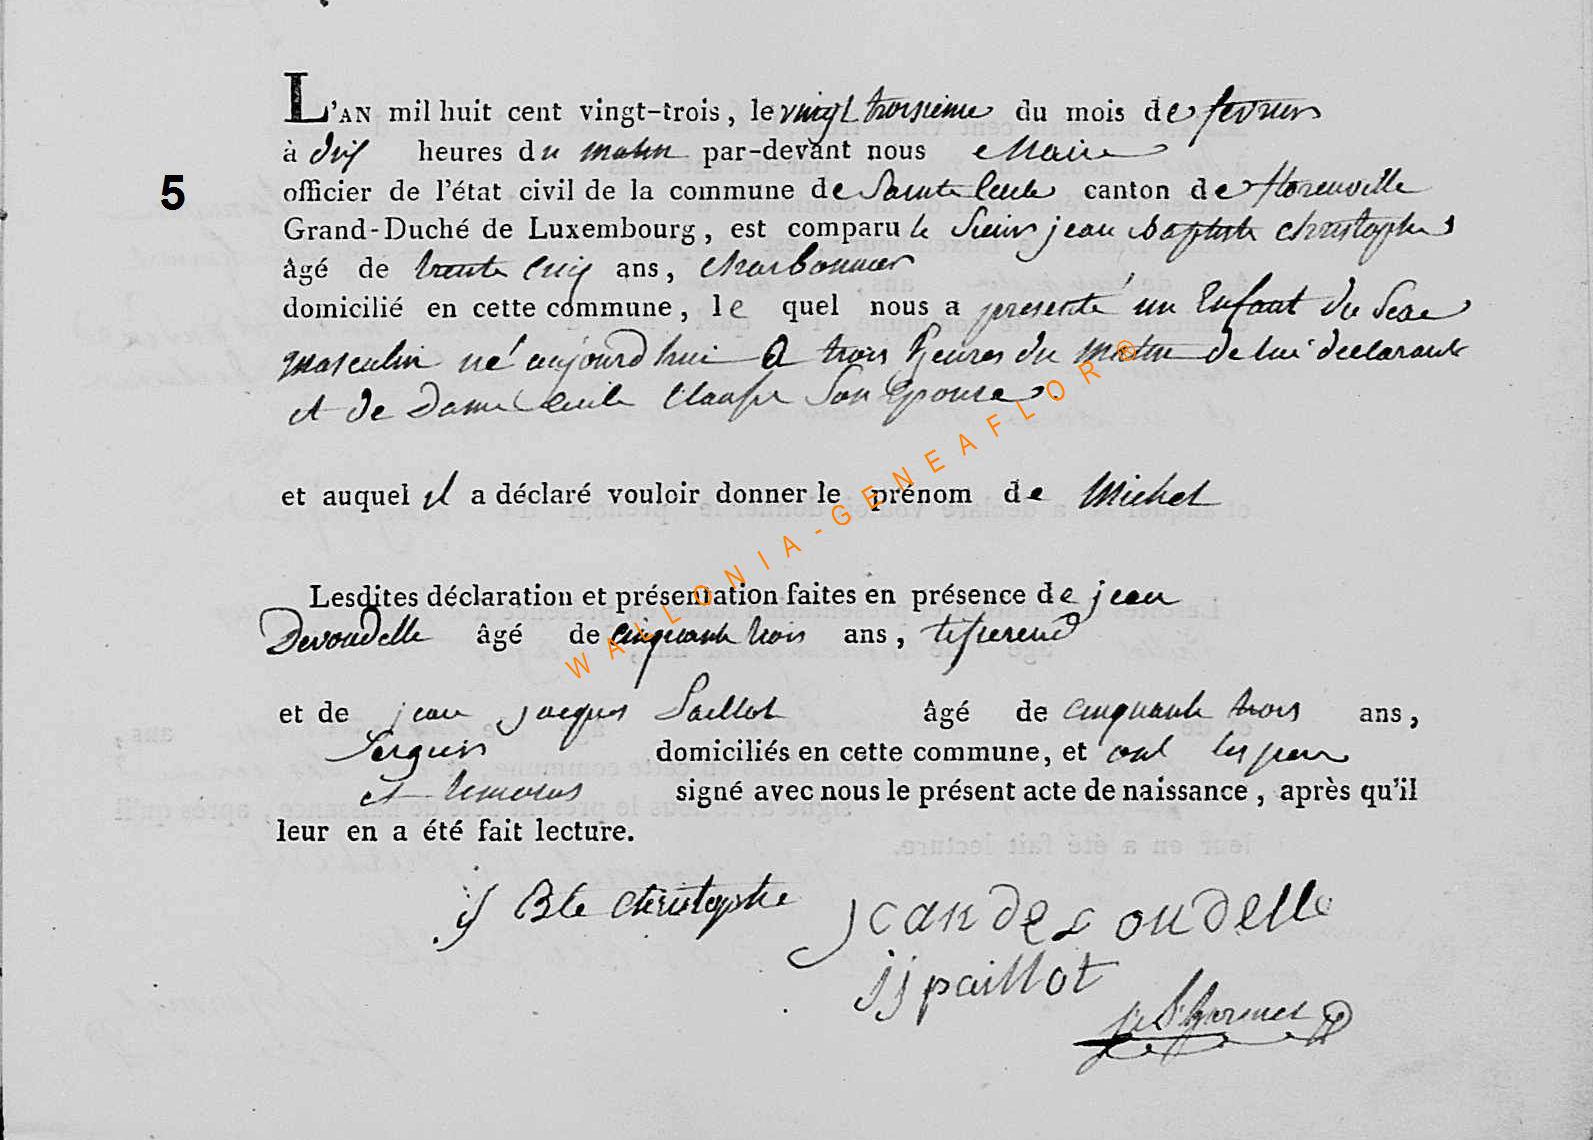 L'AN mil huit cent vingt-trois, le vingt troisieme du mois de fevrier
à dix heures du matin par-devant nous Maire
5
officier de l'état civil de la commune de Sainte Cecile canton de florenville
Grand-Duché de Luxembourg, est comparu le Sieur jean baptiste christophe
âgé de trente cinq ans, charbonnier
domicilié en cette commune, le quel nous a presenté un Enfant du Sexe
masculin né aujourd'hui a trois heures du matin de lui declarant
et de Dame Cecile Son Epouse.
et auquel il a déclaré vouloir donner le prénom de Michel
Lesdites déclaration et présentation faites en présence de jean
Devoudelle âgé de cinquante trois ans, tisserend
et de jean jacques Paillot âgé de cinquante trois ans,
Sergier domiciliés en cette commune, et ont les pere
et temoins signé avec nous le présent acte de naissance, après qu'il
leur en a été fait lecture.
j Bte christophe
jean de voudelle
jj paillot
WALLONIA-GENEAFLOR®